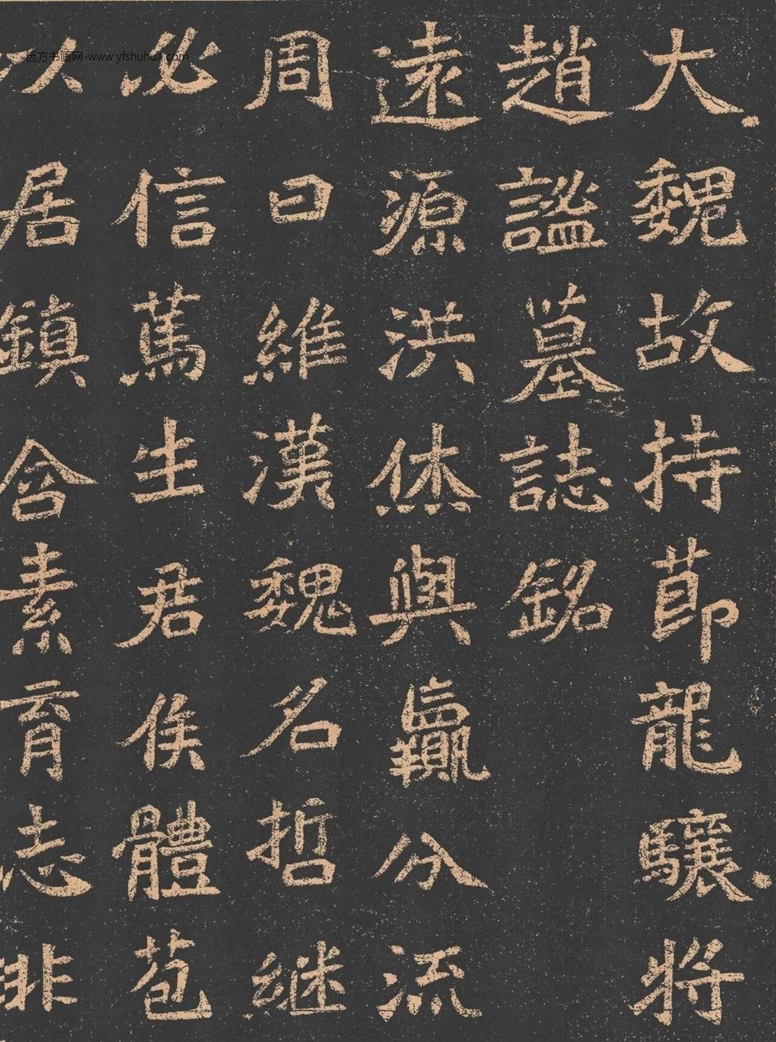 大魏故持莭龍驤將
趙謐墓誌銘
遠源洪烋與蠃分流
周曰維漢魏名哲継
必信蔦生君侯體苞
以居鎮含素育志非
远方书画网-www.yfshuhua.com